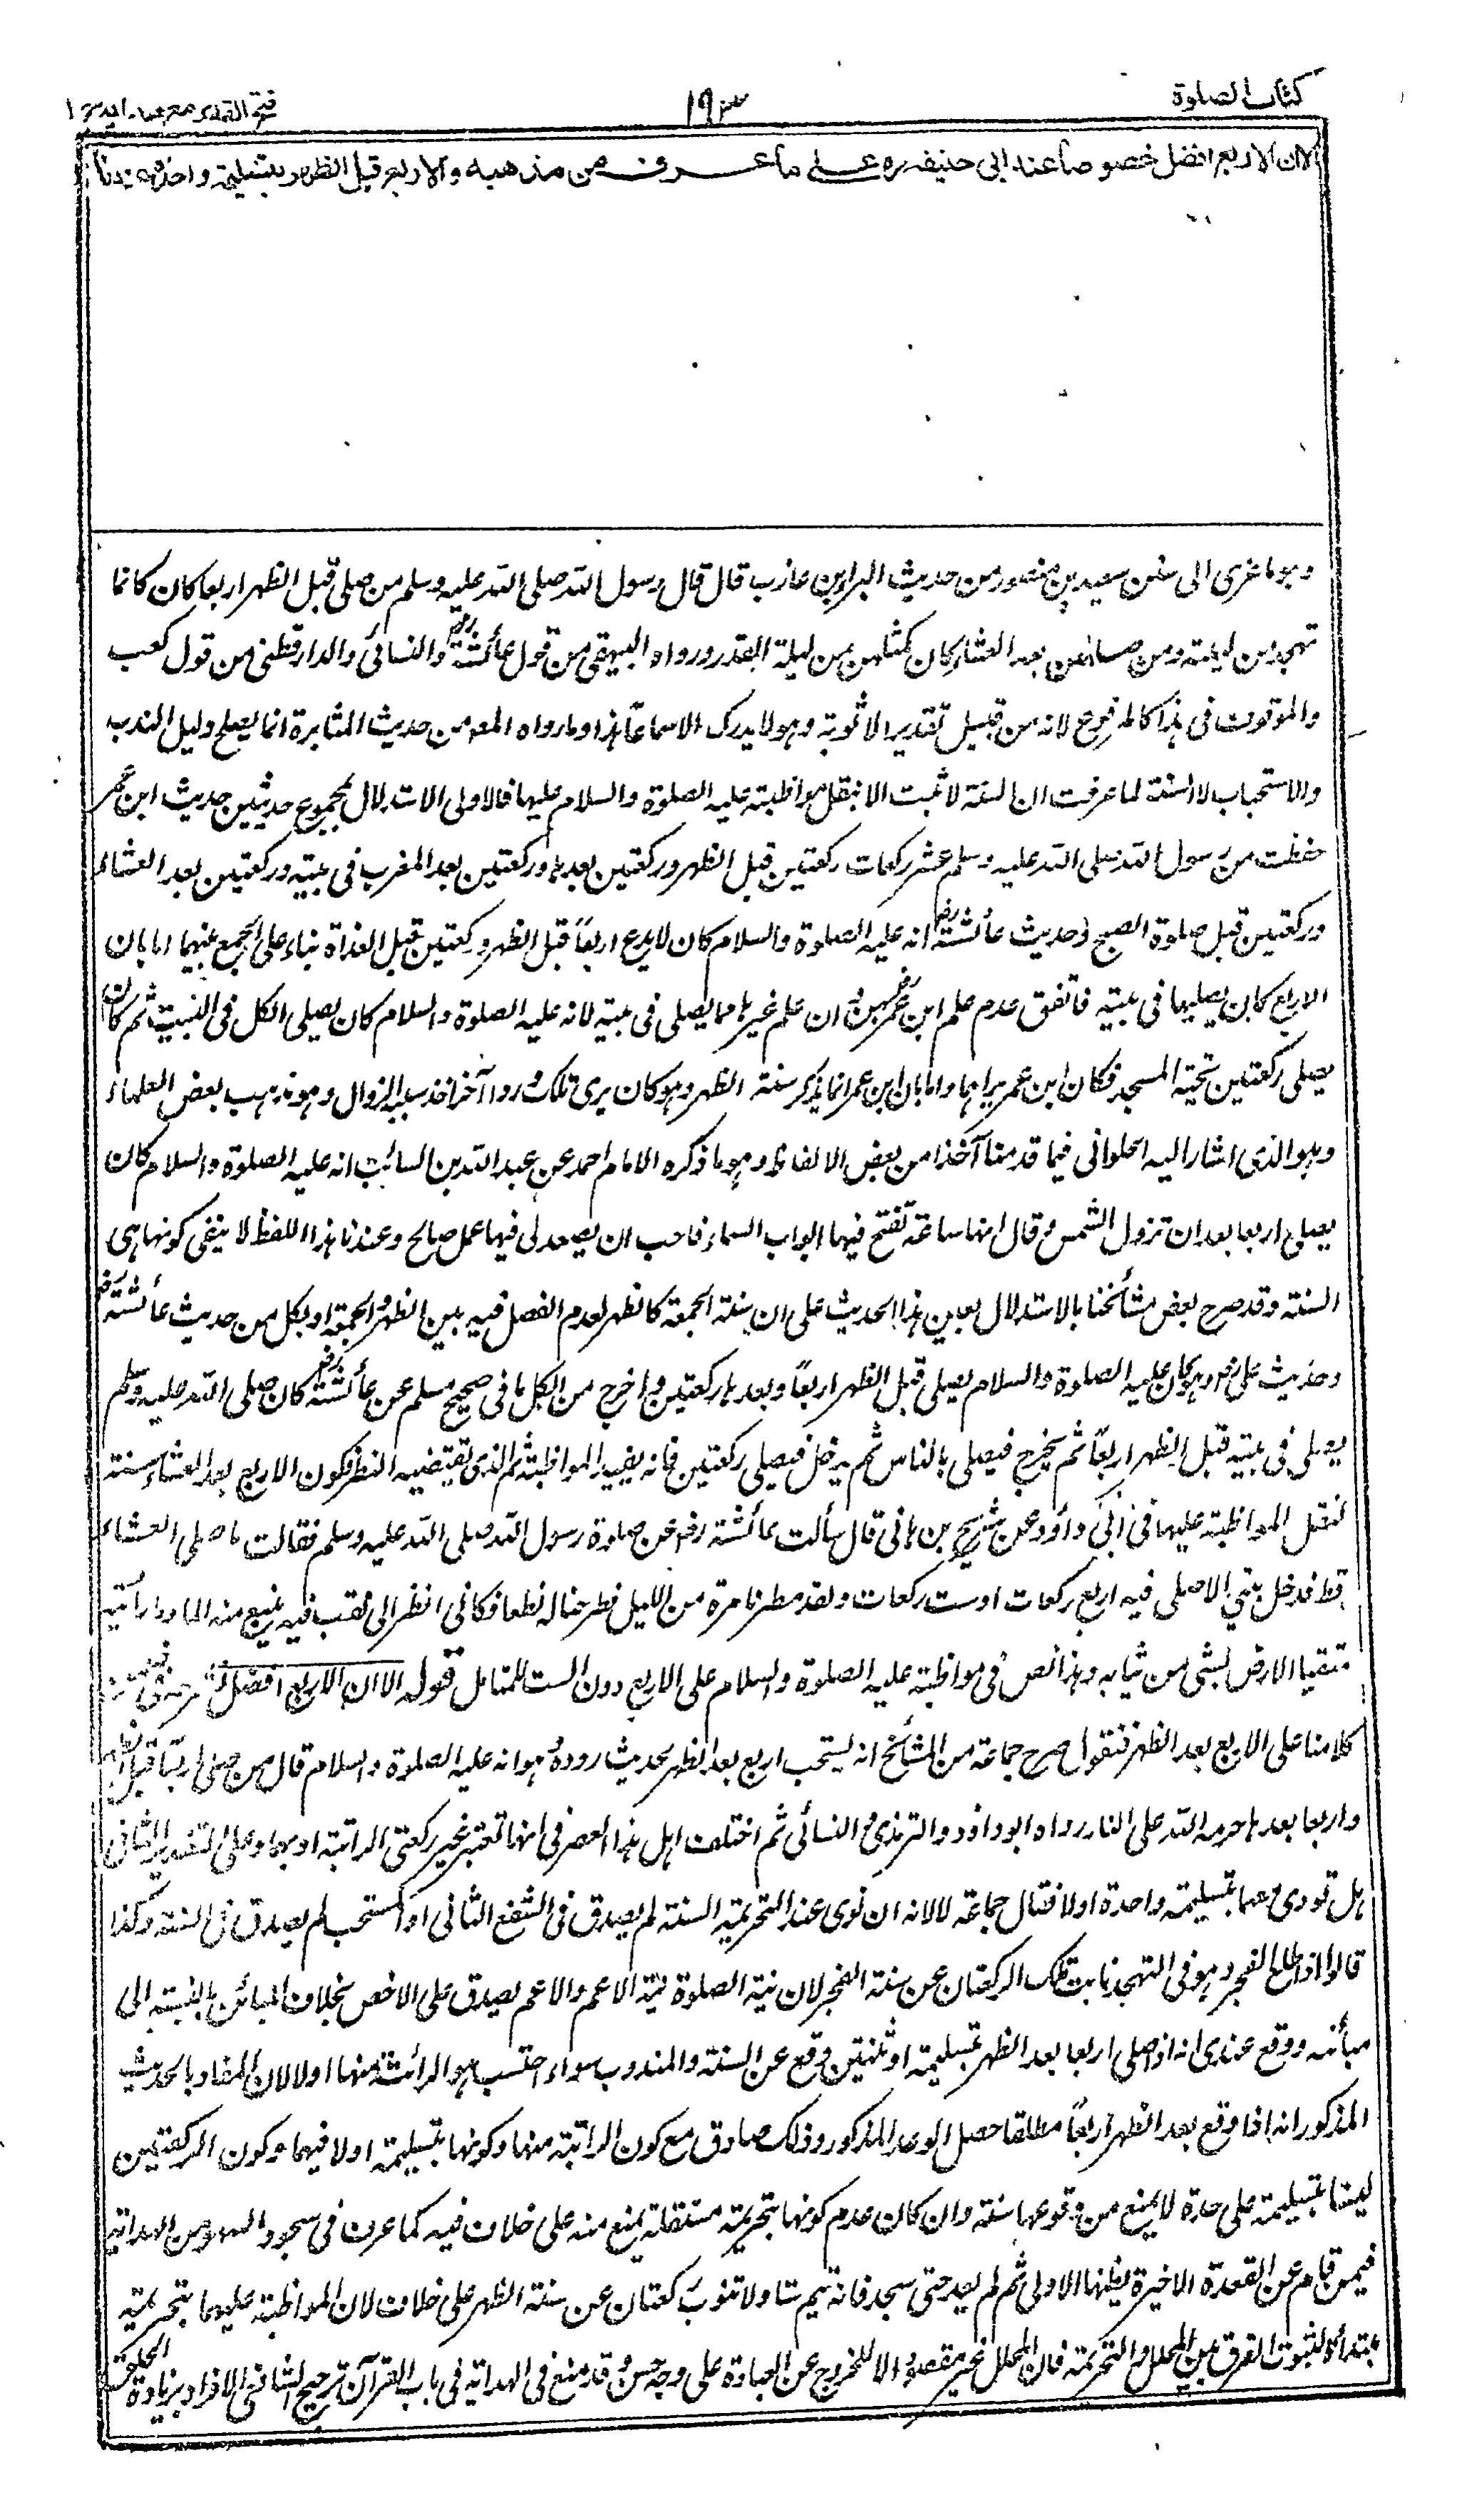 كتاب الصلوة
١٩٣
فتح القدير مع هداية ج ١
الا ان الاربع افضل خصوصا عند ابى حنيفه ره على ما عرف من مذهبه والاربع قبل الظهر بتسليمة واحدة عندنا
وهو ما عزى الى سنن سعيد بن منصور من حديث البراء بن عازب قال قال رسول الله صلى الله عليه وسلم من صلى قبل الظهر اربعا كان كانما
تهجد من ليلته ومن صلاهن بعد العشاء كان كمثلهن من ليلة القدر ورواه البيهقى من قول عائشة رض والنسائى والدارقطنى من قول كعب
والموقوف فى هذا كالمرفوع لانه من قبيل تقدير الاثوبة وهو لا يدرك الا سماعا هذا وما رواه المص من حديث المثابرة انما يصلح دليل الندب
والاستحباب لا السنة لما عرفت ان السنة لا تثبت الا بنقل مواظبته عليه الصلوة والسلام عليها فالاولى الاستدلال بمجموع حديثين حديث ابن عمر
حفظت من رسول الله صلى الله عليه وسلم عشر ركعات ركعتين قبل الظهر وركعتين بعدها وركعتين بعد المغرب فى بيته وركعتين بعد العشاء
وركعتين قبل صلوة الصبح وحديث عائشة رض انه عليه الصلوة والسلام كان لا يدع اربعاً قبل الظهر وركعتين قبل الغداة بناء على الجمع بينهما اما بان
الاربع كان يصليها فى بيته فاتفق عدم علم ابن عمر رض بهن وان علم غيرها مما يصلى فى بيته لانه عليه الصلوة والسلام كان يصلى الكل فى البيت ثم كان
يصلى ركعتين تحية المسجد فكان ابن عمر يراهما واما بان ابن عمر انما ذكر سنة الظهر وهو كان يرى تلك وردا آخر اخذ سببه الزوال وهو مذهب بعض العلماء
وهو الذى اشار اليه الحلوانى فيما قدمنا آخذا من بعض الالفاظ وهو ما ذكره الامام احمد عن عبد الله بن السائب انه عليه الصلوة والسلام كان
يصلى اربعا بعد ان تزول الشمس وقال انها ساعة تفتح فيها ابواب السماء فاحب ان يصعد لى فيها عمل صالح وعندنا هذا اللفظ لا ينفى كونها هى
السنة وقد صرح بعض مشائخنا بالاستدلال بعين هذا الحديث على ان سنة الجمعة كالظهر لعدم الفصل فيه بين الظهر والجمعة او بكل من حديث عائشة رض
وحديث على رض وهو كان عليه الصلوة والسلام يصلى قبل الظهر اربعاً وبعدها ركعتين واخرج من الكل ما فى صحيح مسلم عن عائشة رض كان صلى الله عليه وسلم
يصلى فى بيته قبل الظهر اربعاً ثم يخرج فيصلى بالناس ثم يدخل فيصلى ركعتين فانه يفيد المواظبة ثم الذى تقتضيه النظر كون الاربع بعد العشاء سنة
لنقل المواظبة عليها فى ابى داؤد عن شريح بن هانى قال سألت عائشة رض عن صلوة رسول الله صلى الله عليه وسلم فقالت ما صلى العشاء
قط فدخل بيتي الا صلى فيه اربع ركعات او ست ركعات ولقد مطرنا مرة من الليل فطرحنا له نطعا فكانى انظر الى ثقب فيه ينبع منه الماء وما رأيته
متقيا الارض بشئ من ثيابه وهذا نص فى مواظبته عليه الصلوة والسلام على الاربع دون الست للمتامل قوله الا ان الاربع افضل
كلامنا على الاربع بعد الظهر فنقول صرح جماعة من المشائخ انه يستحب اربع بعد الظهر لحديث رووه وهو انه عليه الصلوة والسلام قال من صلى اربعا قبل الظهر
واربعا بعدها حرمه الله على النار رواه ابو داؤد والترمذى والنسائى ثم اختلف اهل هذا العصر فى انها تعتبر غير ركعتى الراتبة او بهما وعلى التقدير الثانى
هل تؤدى معهما بتسليمة واحدة اولا فقال جماعة لا لانه ان نوى عند التحريمة السنة لم يصدق فى الشفع الثانى او المستحب لم يصدق فى السنة وكذا
قالوا اذا طلع الفجر وهو فى التهجد نابت تلك الركعتان عن سنة الفجر لان نية الصلوة نية الاعم والاعم يصدق على الاخص بخلاف المبائن بالنسبة الى
مبائنه ووقع عندى انه اذا صلى اربعا بعد الظهر بتسليمة او ثنتين وقع عن السنة والمندوب سواء احتسب هو الراتبة منها اولا لان المفاد بالحديث
المذكور انه اذا وقع بعد الظهر اربعاً مطلقا حصل الوعد المذكور وذلك صادق مع كون الراتبة منها وكونها بتسليمة اولا فيهما وكون الركعتين
ليستا بتسليمة على حدة لا يمنع من وقوعهما سنة وان كان عدم كونها بتحريمة مستقلة يمنع منه على خلاف فيه كما عرف فى سجود السهو من الهداية
فيمن قام عن القعدة الاخيرة يظنها الاولى ثم لم يعد حتى سجد فانه يتم ستا ولا تنوب ركعتان عن سنة الظهر على خلاف لان المواظبة عليهما بتحريمة
مبتدأة لثبوت الفرق بين المحلل والتحريمة فان المحلل غير مقصود الا للخروج عن العبادة على وجه حسن وقد منع فى الهداية فى باب القرآن ترجيح الشافعى الافراد بزيادة الحلق